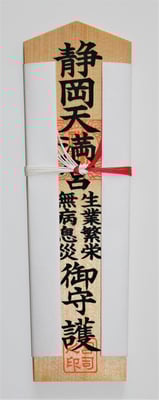 静岡天満宮
生業繁栄
無病息災
御守護